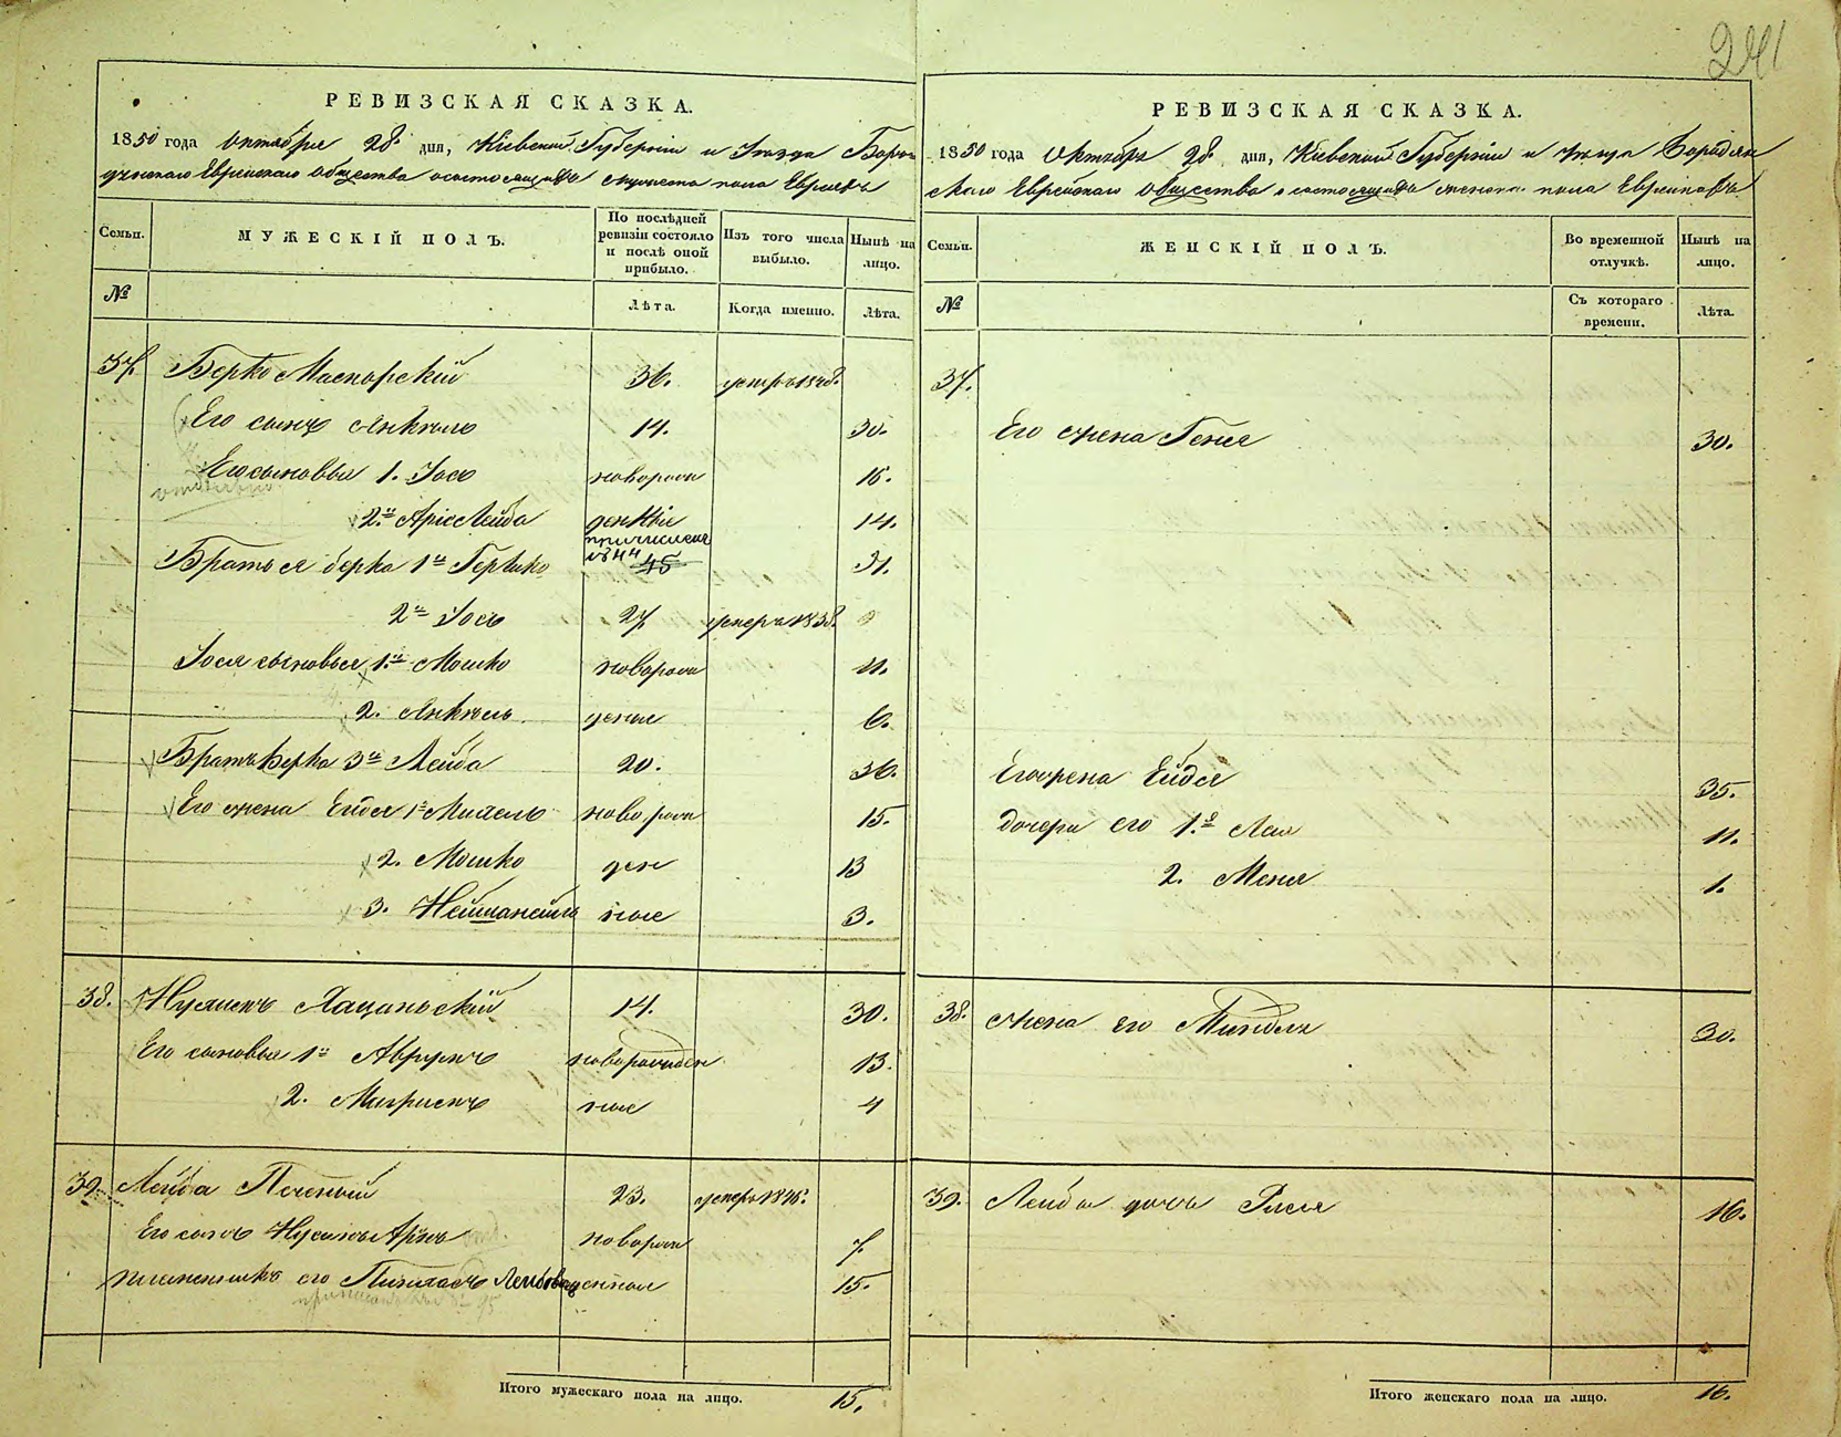 241
РЕВИЗСКАЯ СКАЗКА.
1850 года Октября 28. дня, Кіевской Губерніи и Уѣзда
Еврейскаго Общества о состоящихъ мужеска пола Евреехъ
Семьи.
МУЖЕСКІЙ ПОЛЪ.
По послѣдней ревизіи состояло и послѣ оной прибыло.
Изъ того числа выбыло.
Нынѣ на лицо.
№
Лѣта.
Когда именно.
Лѣта.
37. Берко 36. умеръ
Его сынъ Янкель 14. 30.
Его сыновья 1. Іось новорож 16.
2й Аріе Лейба денные 14.
причислен
Братья Берка 1й Гершко 45 31.
2й Іось 27 умеръ 1838.
Іося сыновья 1й Мошко новорож 11.
2. Янкель денные 6.
Братъ Берка 3й Лейба 20. 36.
Его жена Ейдя 1й новорож 15.
2. Мошко ден 13
3. ные 3.
38. 14. 30.
Его сыновья 1й новорожден 13.
2. ные 4
39. Лейба 23. умеръ
Его сынъ новорож 7.
племянникъ его Пинхасъ денные 15.
Итого мужескаго пола на лицо. 15.
РЕВИЗСКАЯ СКАЗКА.
1850 года Октября 28. дня, Кіевской Губерніи и Уѣзда Бородян
скаго Еврейскаго Общества о состоящихъ женска пола Еврейкахъ
Семьи.
ЖЕНСКІЙ ПОЛЪ.
Во временной отлучкѣ.
Нынѣ на лицо.
№
Съ котораго времени.
Лѣта.
37.
Его жена Геня 30.
Его жена Ейдя 35.
дочери его 1я Лея 11.
2. Меня 1.
38. жена его Миндля 30.
39. Лейба дочь Рися 16.
Итого женскаго пола на лицо. 16.